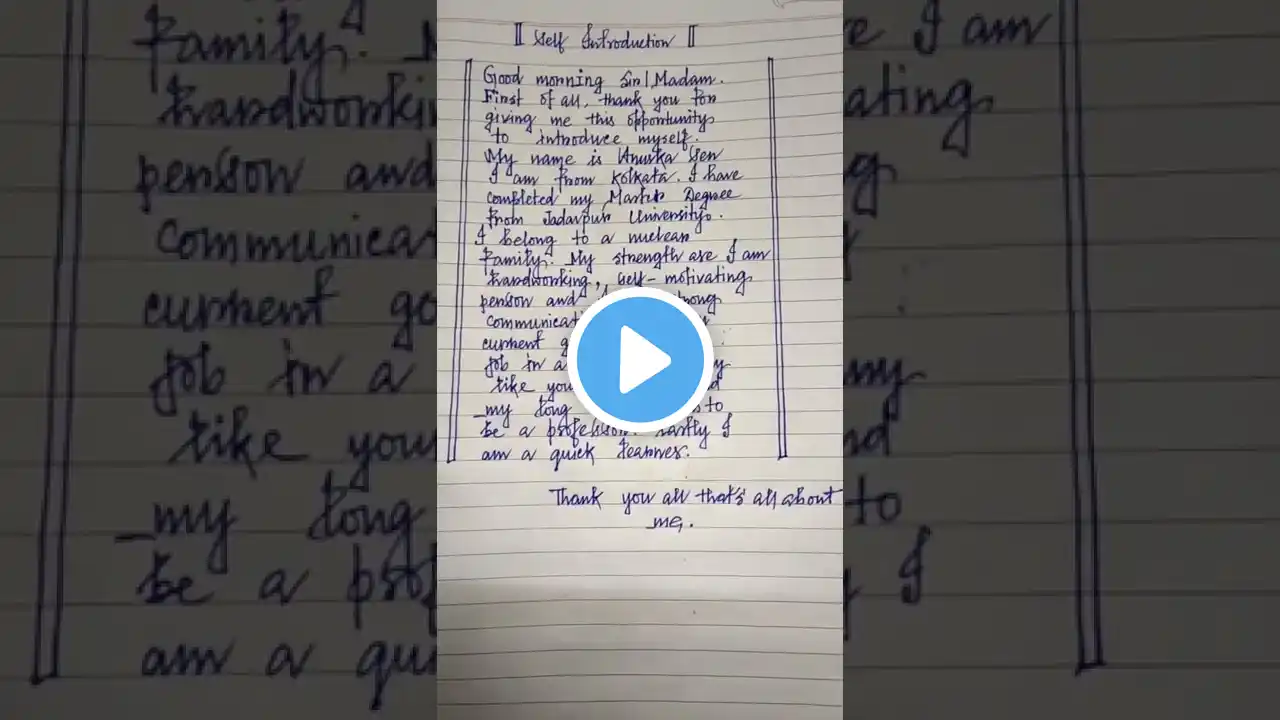 Self Introduction
Good morning Sir/Madam.
First of all, thank you for
giving me this opportunity
to introduce myself.
My name is Anuska Sen
I am from Kolkata. I have
completed my Master Degree
from Jadavpur University.
I belong to a nuclear
family. My strength are I am
hardworking, self-motivating
person and
current
job in a
like
my long to
be a professor. Lastly I
am a quick learner.
Thank you all that's all about
me.